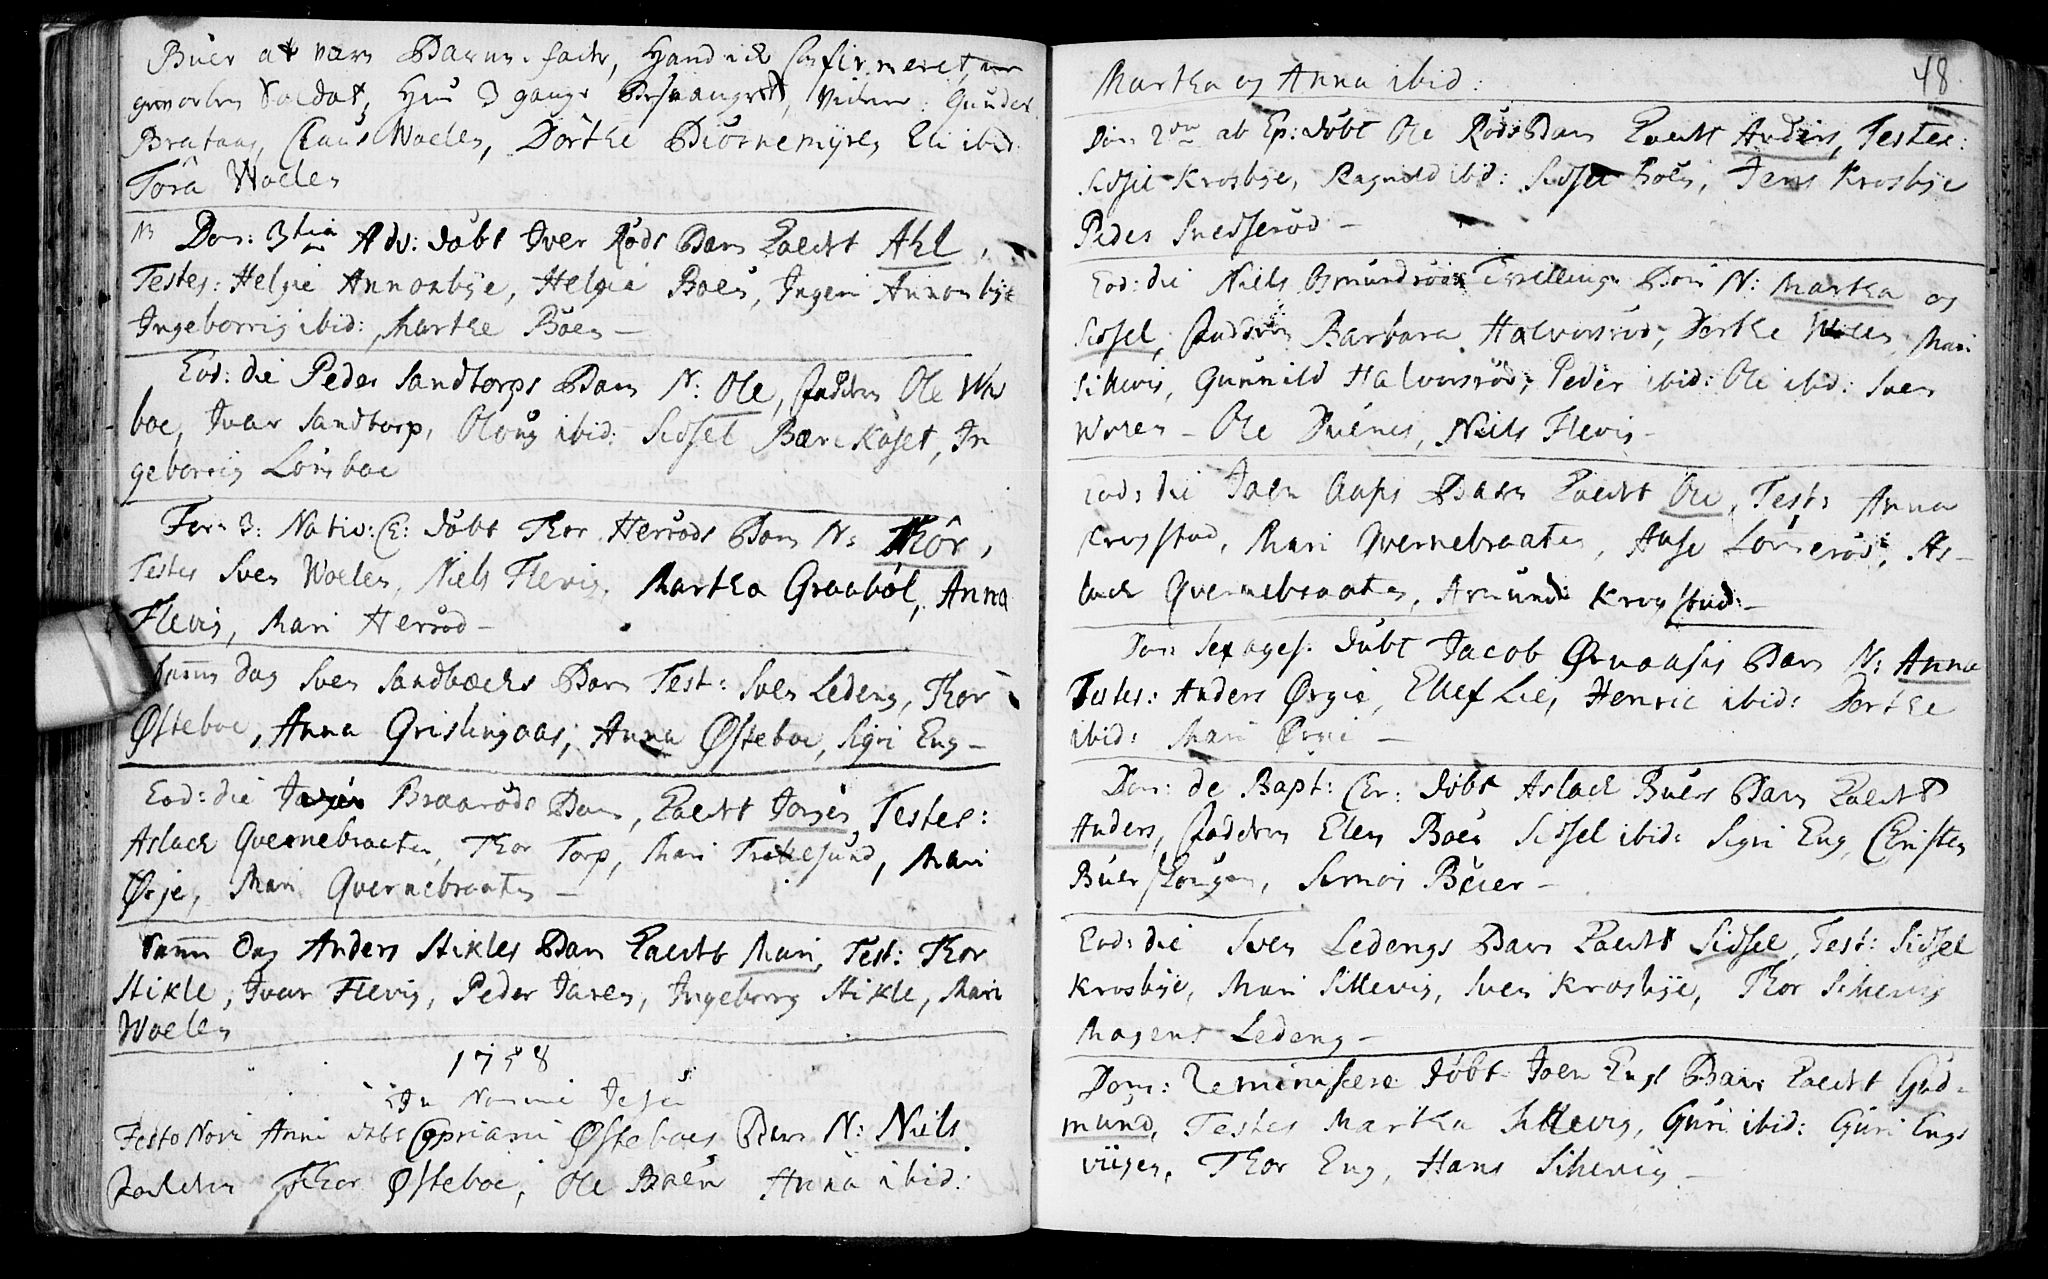 Buer at være Barne-fader, Hand ick Confirmeret,
Soldat, Hun 3 gange Testes: Gunder
Brataas, Claus Woelen, Dorthe Biörnemÿren Eli ibid:
Tora Woelen
NB Dom: 3tia Adv: döbt Iver Röds Barn kaldt Ahl,
Testes: Helgie Annonbÿe, Helgie Boen, Ingen Annonbÿe
Ingeborrig ibid: Marthe Böen –
Eod: die Peder Sandtorps Barn N: Ole, fadder Ole
boe, Ivar Sandtorp, Oloug ibid: Sidsel Bærekaset, In
geborrig Lönsboe
Fer: 3: Nativ: C: döbt Thor Herröds Barn N: Thör,
Testes Sven Woelen, Niels Flevig, Martha Graaböl, Anna
Flevig, Mari Herröd –
Samme dag Sven Sandbæchs Barn Test: Sven Ledeng, Thor
Østeboe, Anna Grislingaas, Anna Østeboe, Sigri Eng –
Eod: die Braaröds Barn, kaldt Jörgen, Testes:
Aslach Qvernebraaten, Thor Torp, Mari Trokesund, Mari
Ørje, Mari Qvernebraaten –
Samme Dag Anders Stikles Barn kaldt Mari, Test: Thor
Stikle, Ivar Flevig, Peder Jaren, Ingeborrg Stikle, Mari
Woelen
1758
In Nomine Jesu
Festo Novi Anni döbt Cypriani Østeboes Barn N: Niels.
fadder Thor Østeboe, Ole Boen Anna ibid:
48
Martha og Anna ibid:
Dom 2da ab Ep: döbt Ole Röds Barn kaldt Anders, Testes:
Sidsel Krosbÿe, Ragnild ibid: Sidsel Boen, Jens Krosbÿe
Peder Snesseröd –
Eod: die Niels Osmundröds Tvillinge Börn N: Martha og
Sidsel, fadderne Barbara Halvorsröd, Dorthe Woelen, Mari
Sillevis, Gunnild Halvorsröd, Peder ibid: Ole ibid: Sven
Woelen – Ole Niels Flevig –
Eod: die Joen Barn kaldt Ole, Test: Anna
Krogstad, Mari Qvernebraaten, Aase As-
lach Qvernebraaten, Amunde Krogstad –
Dom Sexages: döbt Jacob Barn N: Anna
Testes: Anders Ørgie, Ellef Lie, Henric ibid: Dorthe
ibid: Mari Ørgie –
Dom: de Bapt: Chr: döbt Aslach Buers Barn kaldt
Anders, fadderne Elen Boen Sidsel ibid: Sigri Eng, Christen
Buer Simon Buer –
Eod: die Sven Ledengs Barn kaldt Sidsel, Test: Sidsel
Krosbÿe, Mari Sillevig, Sven Krosbÿe, Thor Sillevig
Mogens Ledeng –
Dom: Reminiscere döbt Joen Engs Barn kaldt Gud-
mund, Testes Martha Sillevig, Guri ibid: Guri Engs
viigen, Thor Eng, Hans Sillevig –